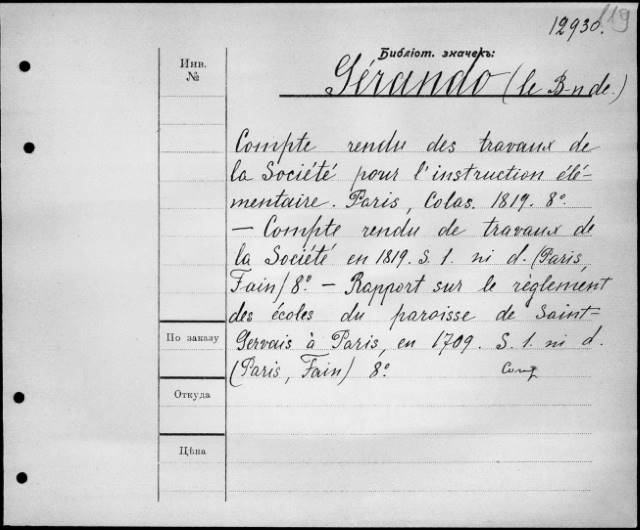 119
12930.
Библіот. значекъ:
Gérando (le B-n de.)
Инв.
№
Compte rendu des travaux de
la Société pour l'instruction élé-
mentaire. Paris, Colas. 1819. 8º
— Compte rendu de travaux de
la Société en 1819. S. l. ni d. (Paris,
Fain) 8º — Rapport sur le règlement
des écoles du paroisse de Saint-
Gervais à Paris, en 1709. S. l. ni d.
(Paris, Fain) 8º
По заказу
Откуда
Цѣна